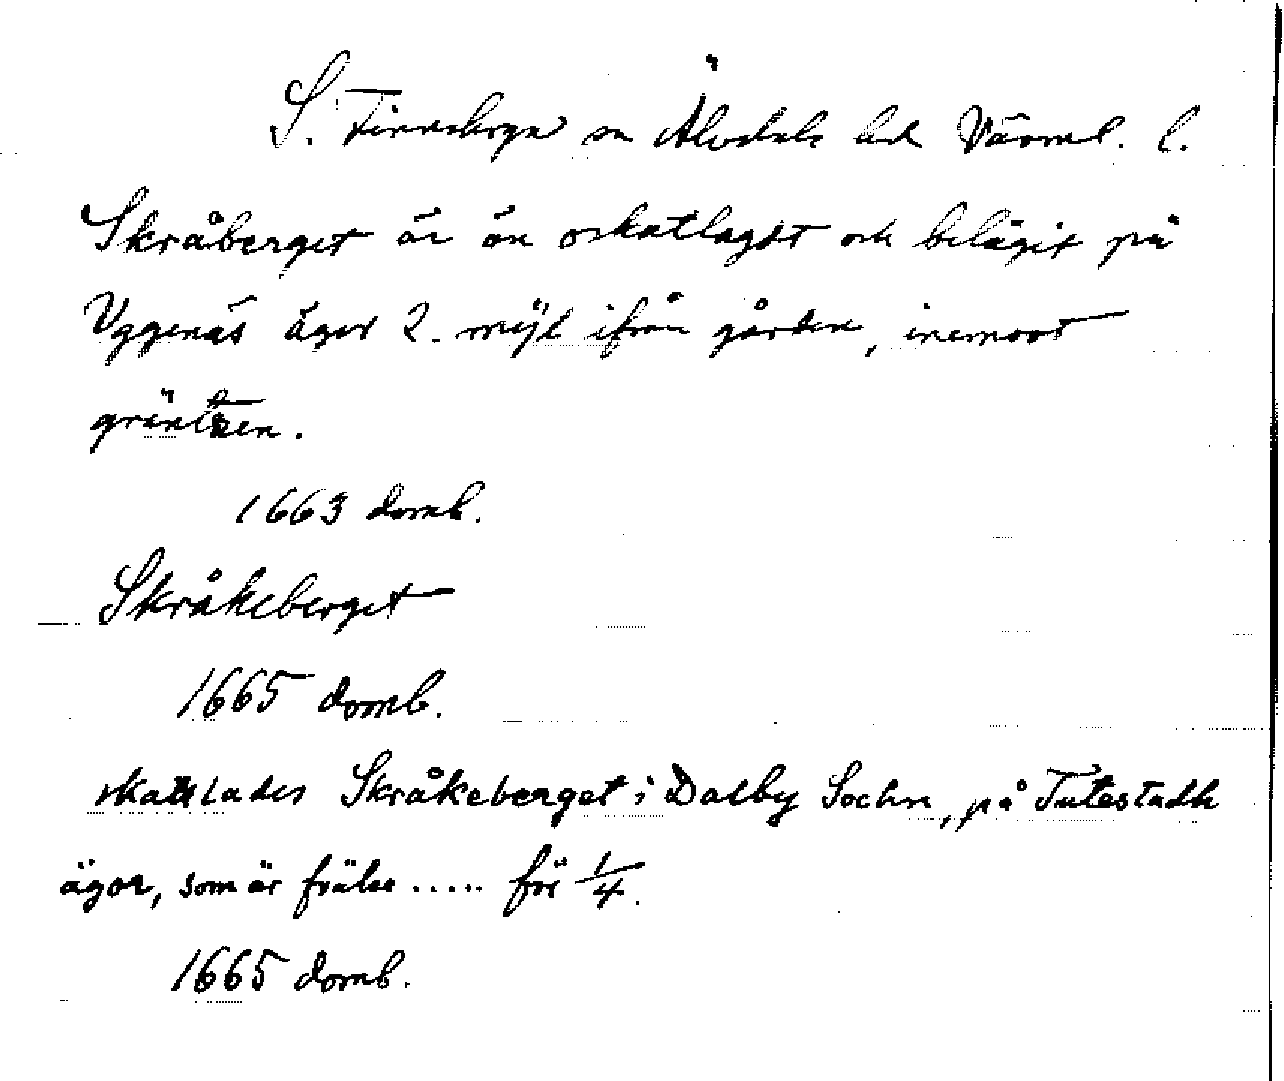 S. Finnskoga sn Älvdals hd Värml. l.
Skråberget är än oskatlagdt och belägit på
Uggenäs ägor 2. mijl ifrån gården, inemoot
gräntzen.
1663 domb.
Skråkeberget
1665 domb.
skattlades Skråkeberget i Dalby Sochn, på Tutestadh
ägor, som är frälse ..... för 1/4.
1665 domb.